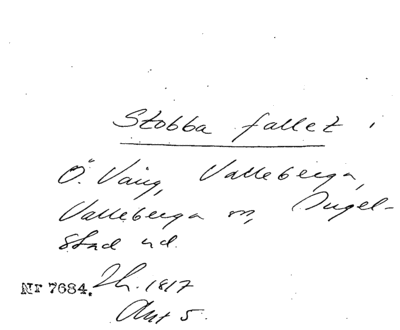 Stobba fallet
Ö. Vång, Valleberga,
Valleberga sn, Ingel-
stad hd.
Nr 7684. Lh. 1817
Akt 5.